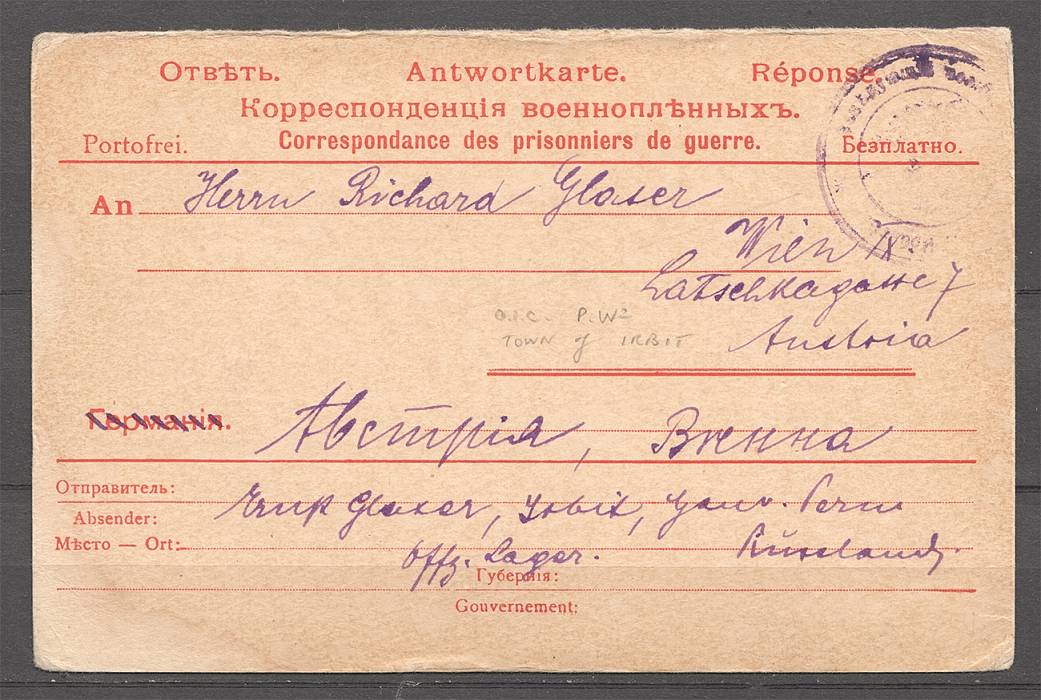 Отвѣть. Antwortkarte. Réponse.
Корреспонденція военноплѣнныхъ.
Portofrei. Correspondance des prisonniers de guerre. Безплатно.
An Herrn Richard Glaser
Wien IX
Latschkagasse 7
O.I.C. P.W²
TOWN of IRBIT
Austria
Германія. Австрія, Вѣнна
Отправитель:
Absender: Glaser, Irbit, Gouv. Perm
Мѣсто — Ort: Offz. Lager. Russland.
Губернія:
Gouvernement: